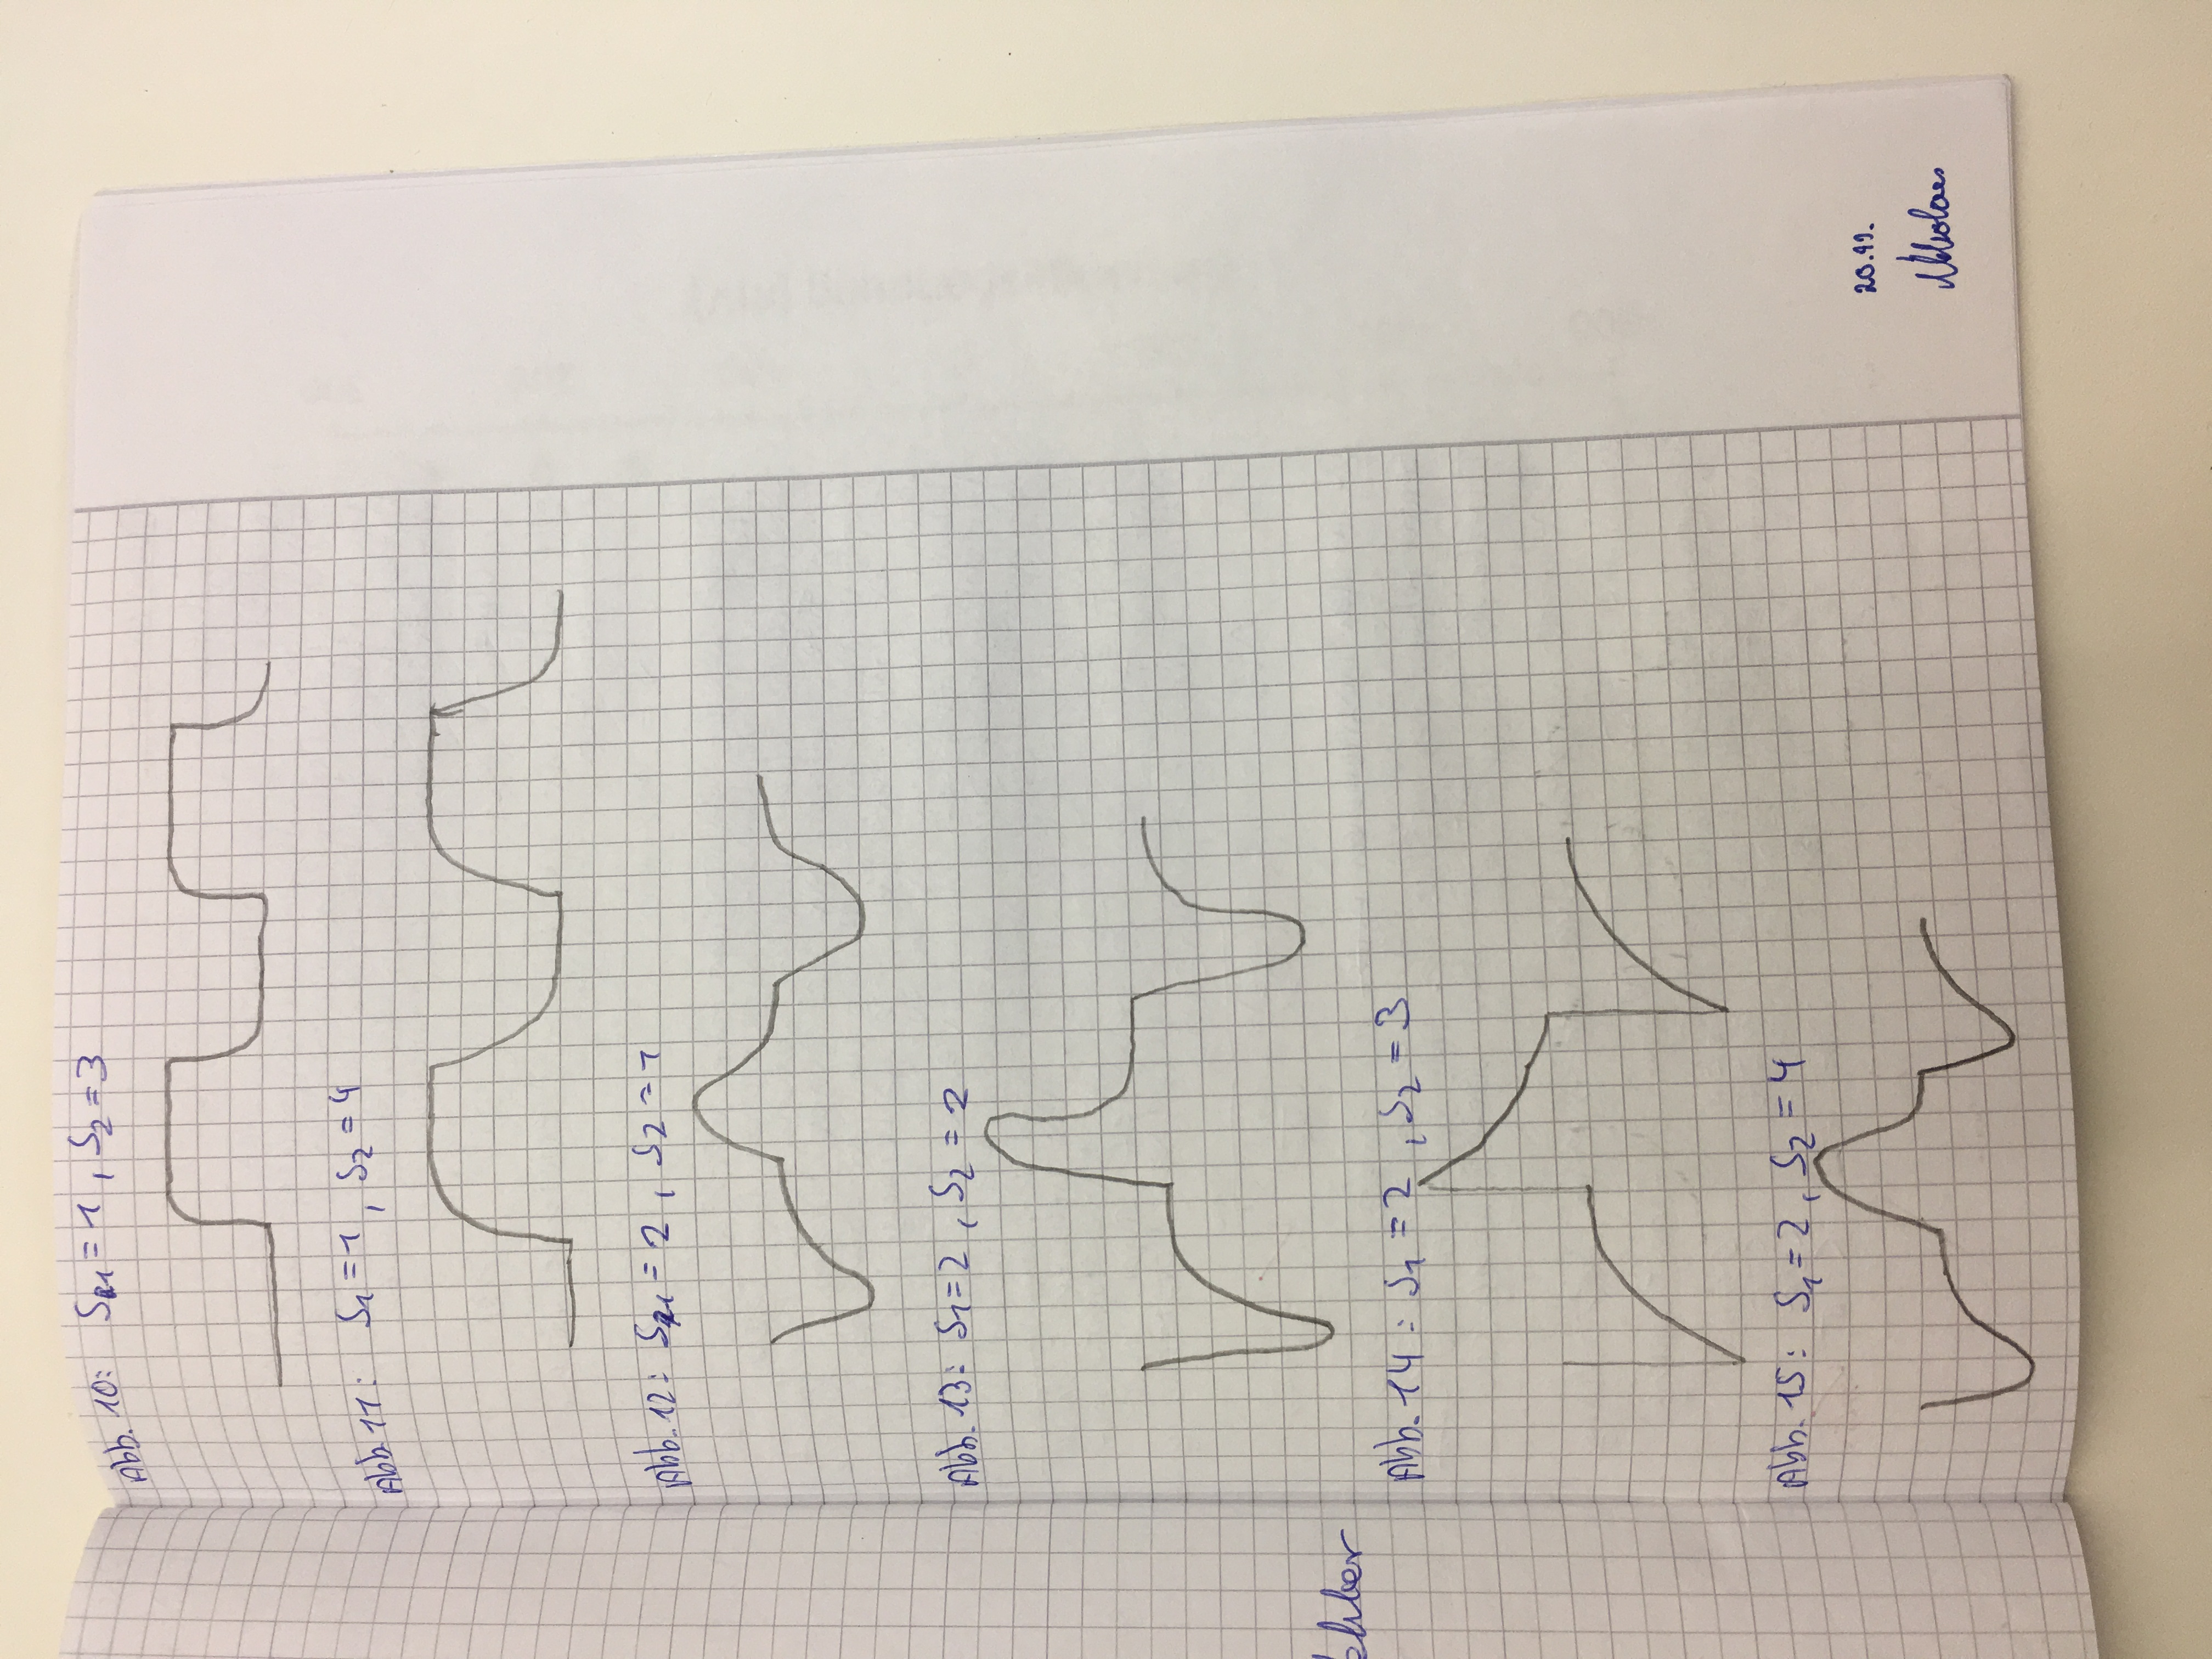 Abb. 10: S1 = 1, S2 = 3
Abb 11: S1 = 1, S2 = 4
Abb. 12: S1 = 2, S2 = 1
Abb. 13: S1 = 2, S2 = 2
Abb. 14: S1 = 2, S2 = 3
Abb. 15: S1 = 2, S2 = 4
20.11.